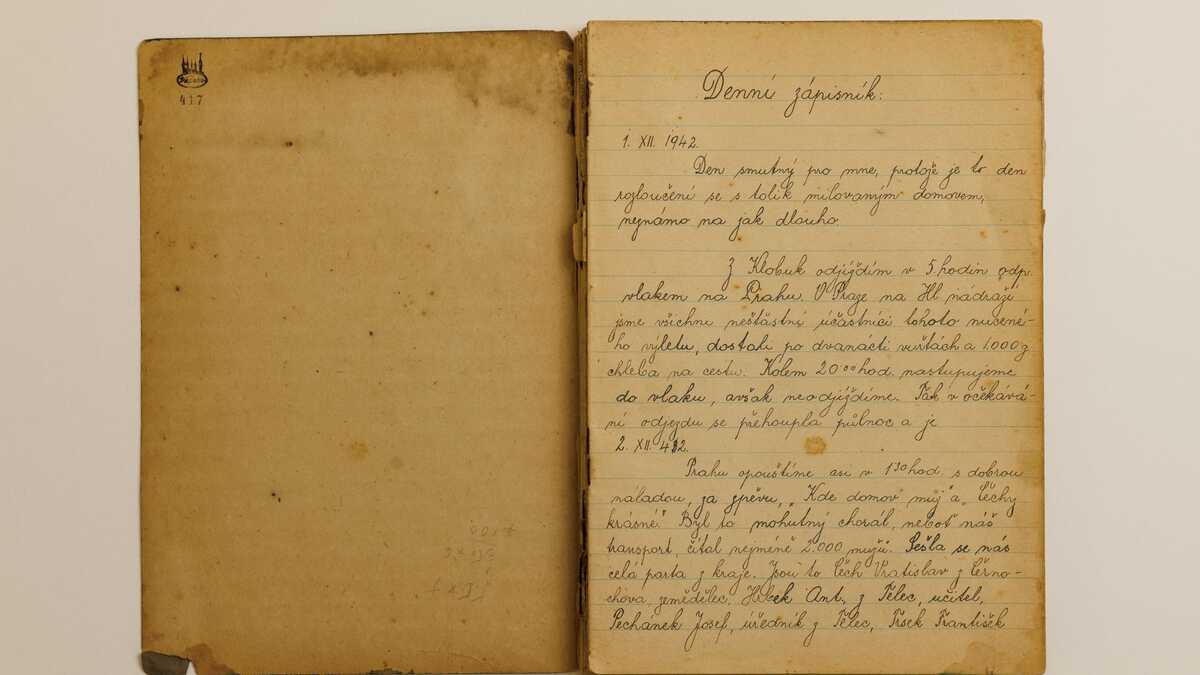 417
Denní zápisník:
1. XII. 1942.
Den smutný pro mne, protože je to den
rozloučení se s tolik milovaným domovem,
neznámo na jak dlouho.
Z Klobuk odjíždím v 5. hodin odp.
vlakem na Prahu. V Praze na Hl. nádraží
jsme všichni nešťastní účastníci tohoto nucené-
ho výletu, dostali po dvanácti vuřtách a 1.000 g
chleba na cestu. Kolem 20°° hod. nastupujeme
do vlaku, avšak neodjíždíme. Tak v očekává-
ní odjezdu se přehoupla půlnoc a je
2. XII. 42.
Prahu opouštíme asi v 1³⁰ hod. s dobrou
náladou, za zpěvu, "Kde domov můj" a "Čechy
krásné." Byl to mohutný chorál, neboť náš
transport, čítal nejméně 2.000 mužů. Sešla se nás
celá parta z kraje. Jsou to Čech Vratislav z Černo-
chova, zemědělec, Ant. z Telec, učitel,
Pechánek Josef, úředník z Telec, František